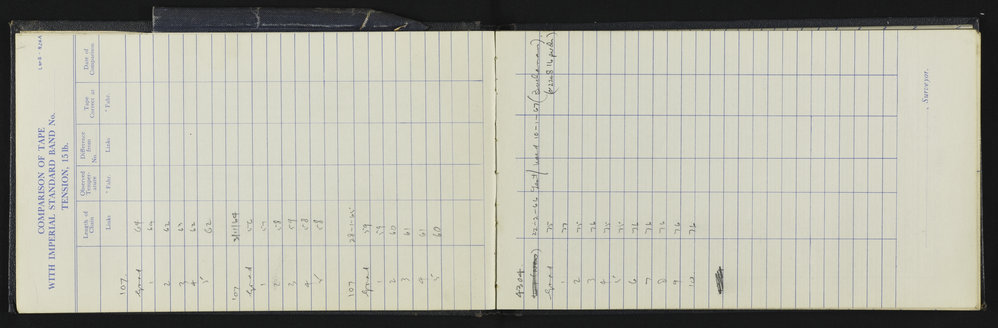 COMPARISON OF TAPE
WITH IMPERIAL STANDARD BAND No.
TENSION, 15 lb.
Length of Chain
Observed Temperature
Difference from No.
Tape Correct at
Date of Comparison
Links
° Fahr.
Links
° Fahr.
107
Grnd 64
1 64
2 62
3 62
4 62
5 62
107
Grnd 56
1 57
2 58
3 59
4 58
5 58
107 28-1-65
Grnd 59
1 59
2 60
3 61
4 61
5 60
4304 22-2-66 Ward 10-1-67 (Buchanan)
Grnd 75
1 77
2 75
3 76
4 75
5 75
6 76
7 76
8 73
9 76
10 76
, Surveyor.